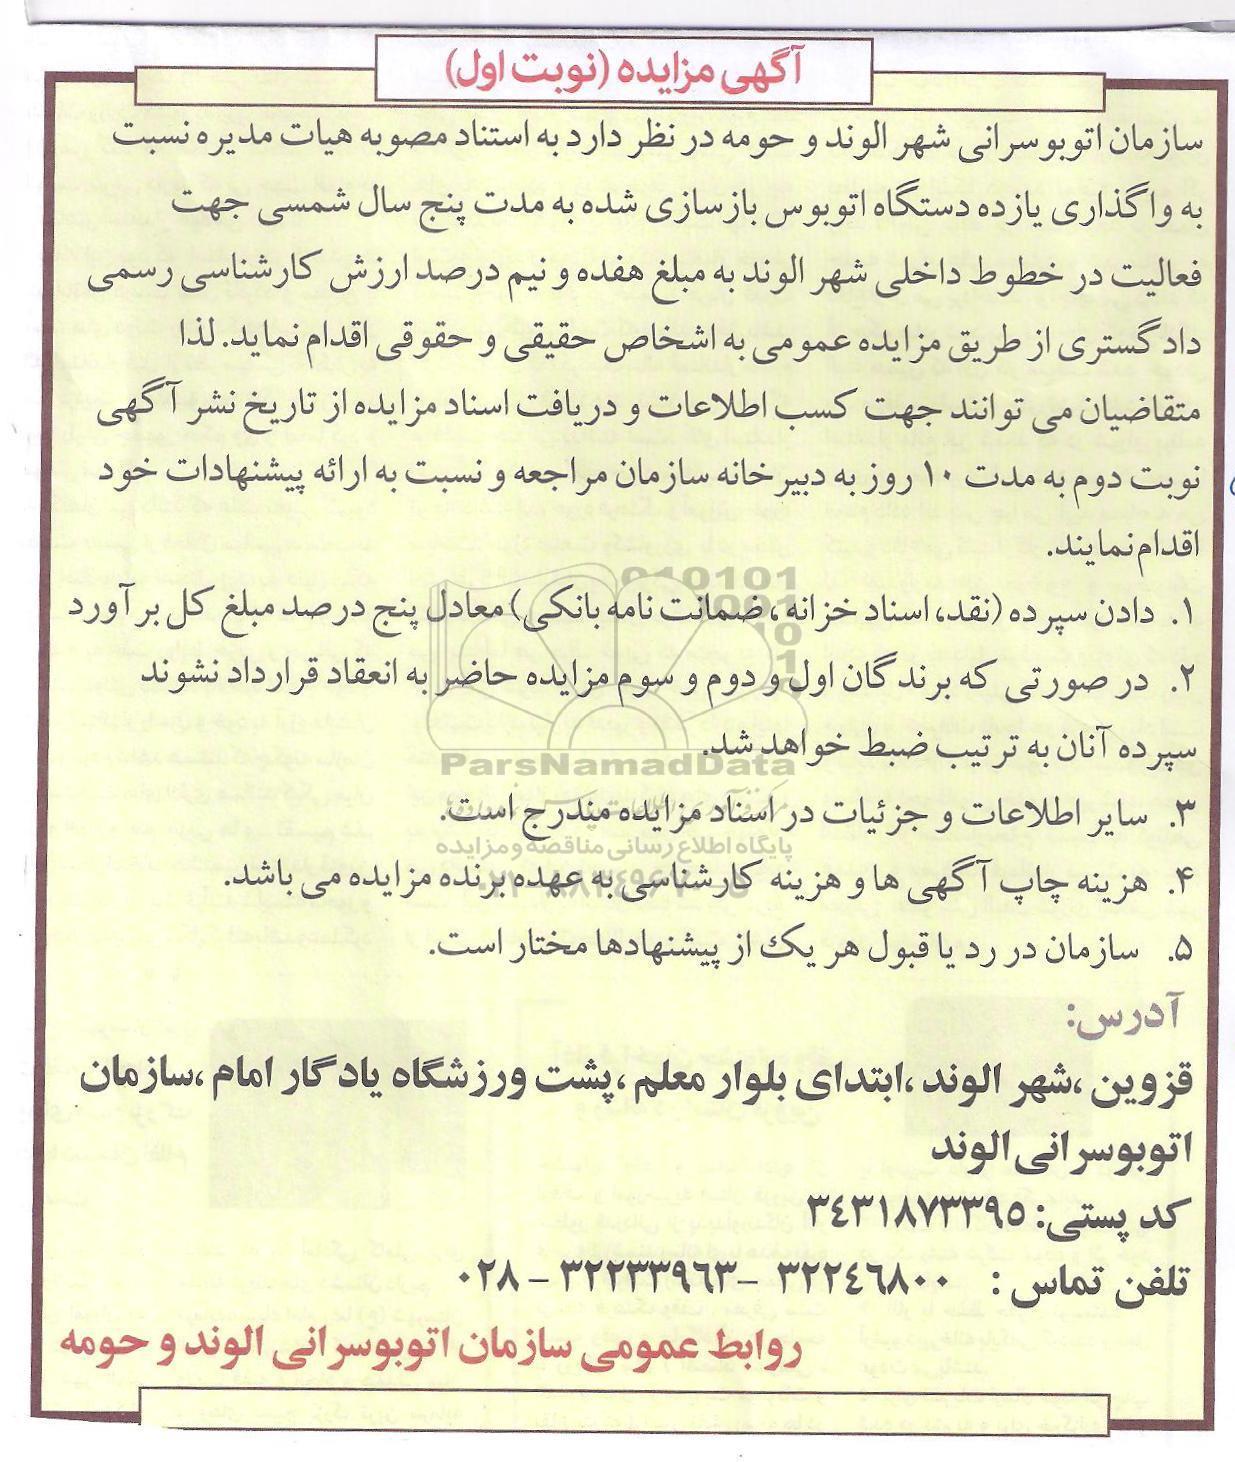 آگهی مزایده (نوبت اول)
سازمان اتوبوسرانی شهر الوند و حومه در نظر دارد به استناد مصوبه هیات مدیره نسبت
به واگذاری یازده دستگاه اتوبوس بازسازی شده به مدت پنج سال شمسی جهت
فعالیت در خطوط داخلی شهر الوند به مبلغ هفده و نیم درصد ارزش کارشناسی رسمی
دادگستری از طریق مزایده عمومی به اشخاص حقیقی و حقوقی اقدام نماید. لذا
متقاضیان می توانند جهت کسب اطلاعات و دریافت اسناد مزایده از تاریخ نشر آگهی
نوبت دوم به مدت ۱۰ روز به دبیرخانه سازمان مراجعه و نسبت به ارائه پیشنهادات خود
اقدام نمایند.
۱. دادن سپرده (نقد، اسناد خزانه، ضمانت نامه بانکی) معادل پنج درصد مبلغ کل برآورد
۲. در صورتی که برندگان اول و دوم و سوم مزایده حاضر به انعقاد قرارداد نشوند
سپرده آنان به ترتیب ضبط خواهد شد.
ParsNamadData
۳. سایر اطلاعات و جزئیات در اسناد مزایده مندرج است.
پایگاه اطلاع رسانی مناقصه و مزایده
۴. هزینه چاپ آگهی ها و هزینه کارشناسی به عهده برنده مزایده می باشد.
۵. سازمان در رد یا قبول هر یک از پیشنهادها مختار است.
آدرس:
قزوین ،شهر الوند ،ابتدای بلوار معلم ،پشت ورزشگاه یادگار امام ،سازمان
اتوبوسرانی الوند
کد پستی: ۳۴۳۱۸۷۳۳۹۵
تلفن تماس : ۳۲۲۴۶۸۰۰ –۳۲۲۳۳۹۶۳ – ۰۲۸
روابط عمومی سازمان اتوبوسرانی الوند و حومه